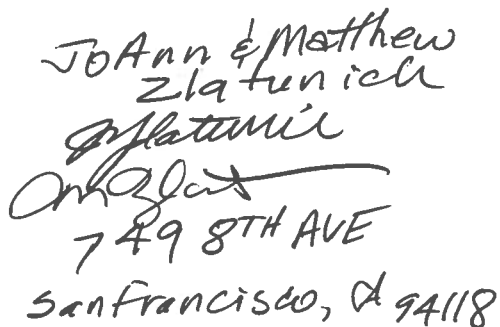 JoAnn & Matthew
Zlatunich
749 8TH AVE
San Francisco, CA 94118